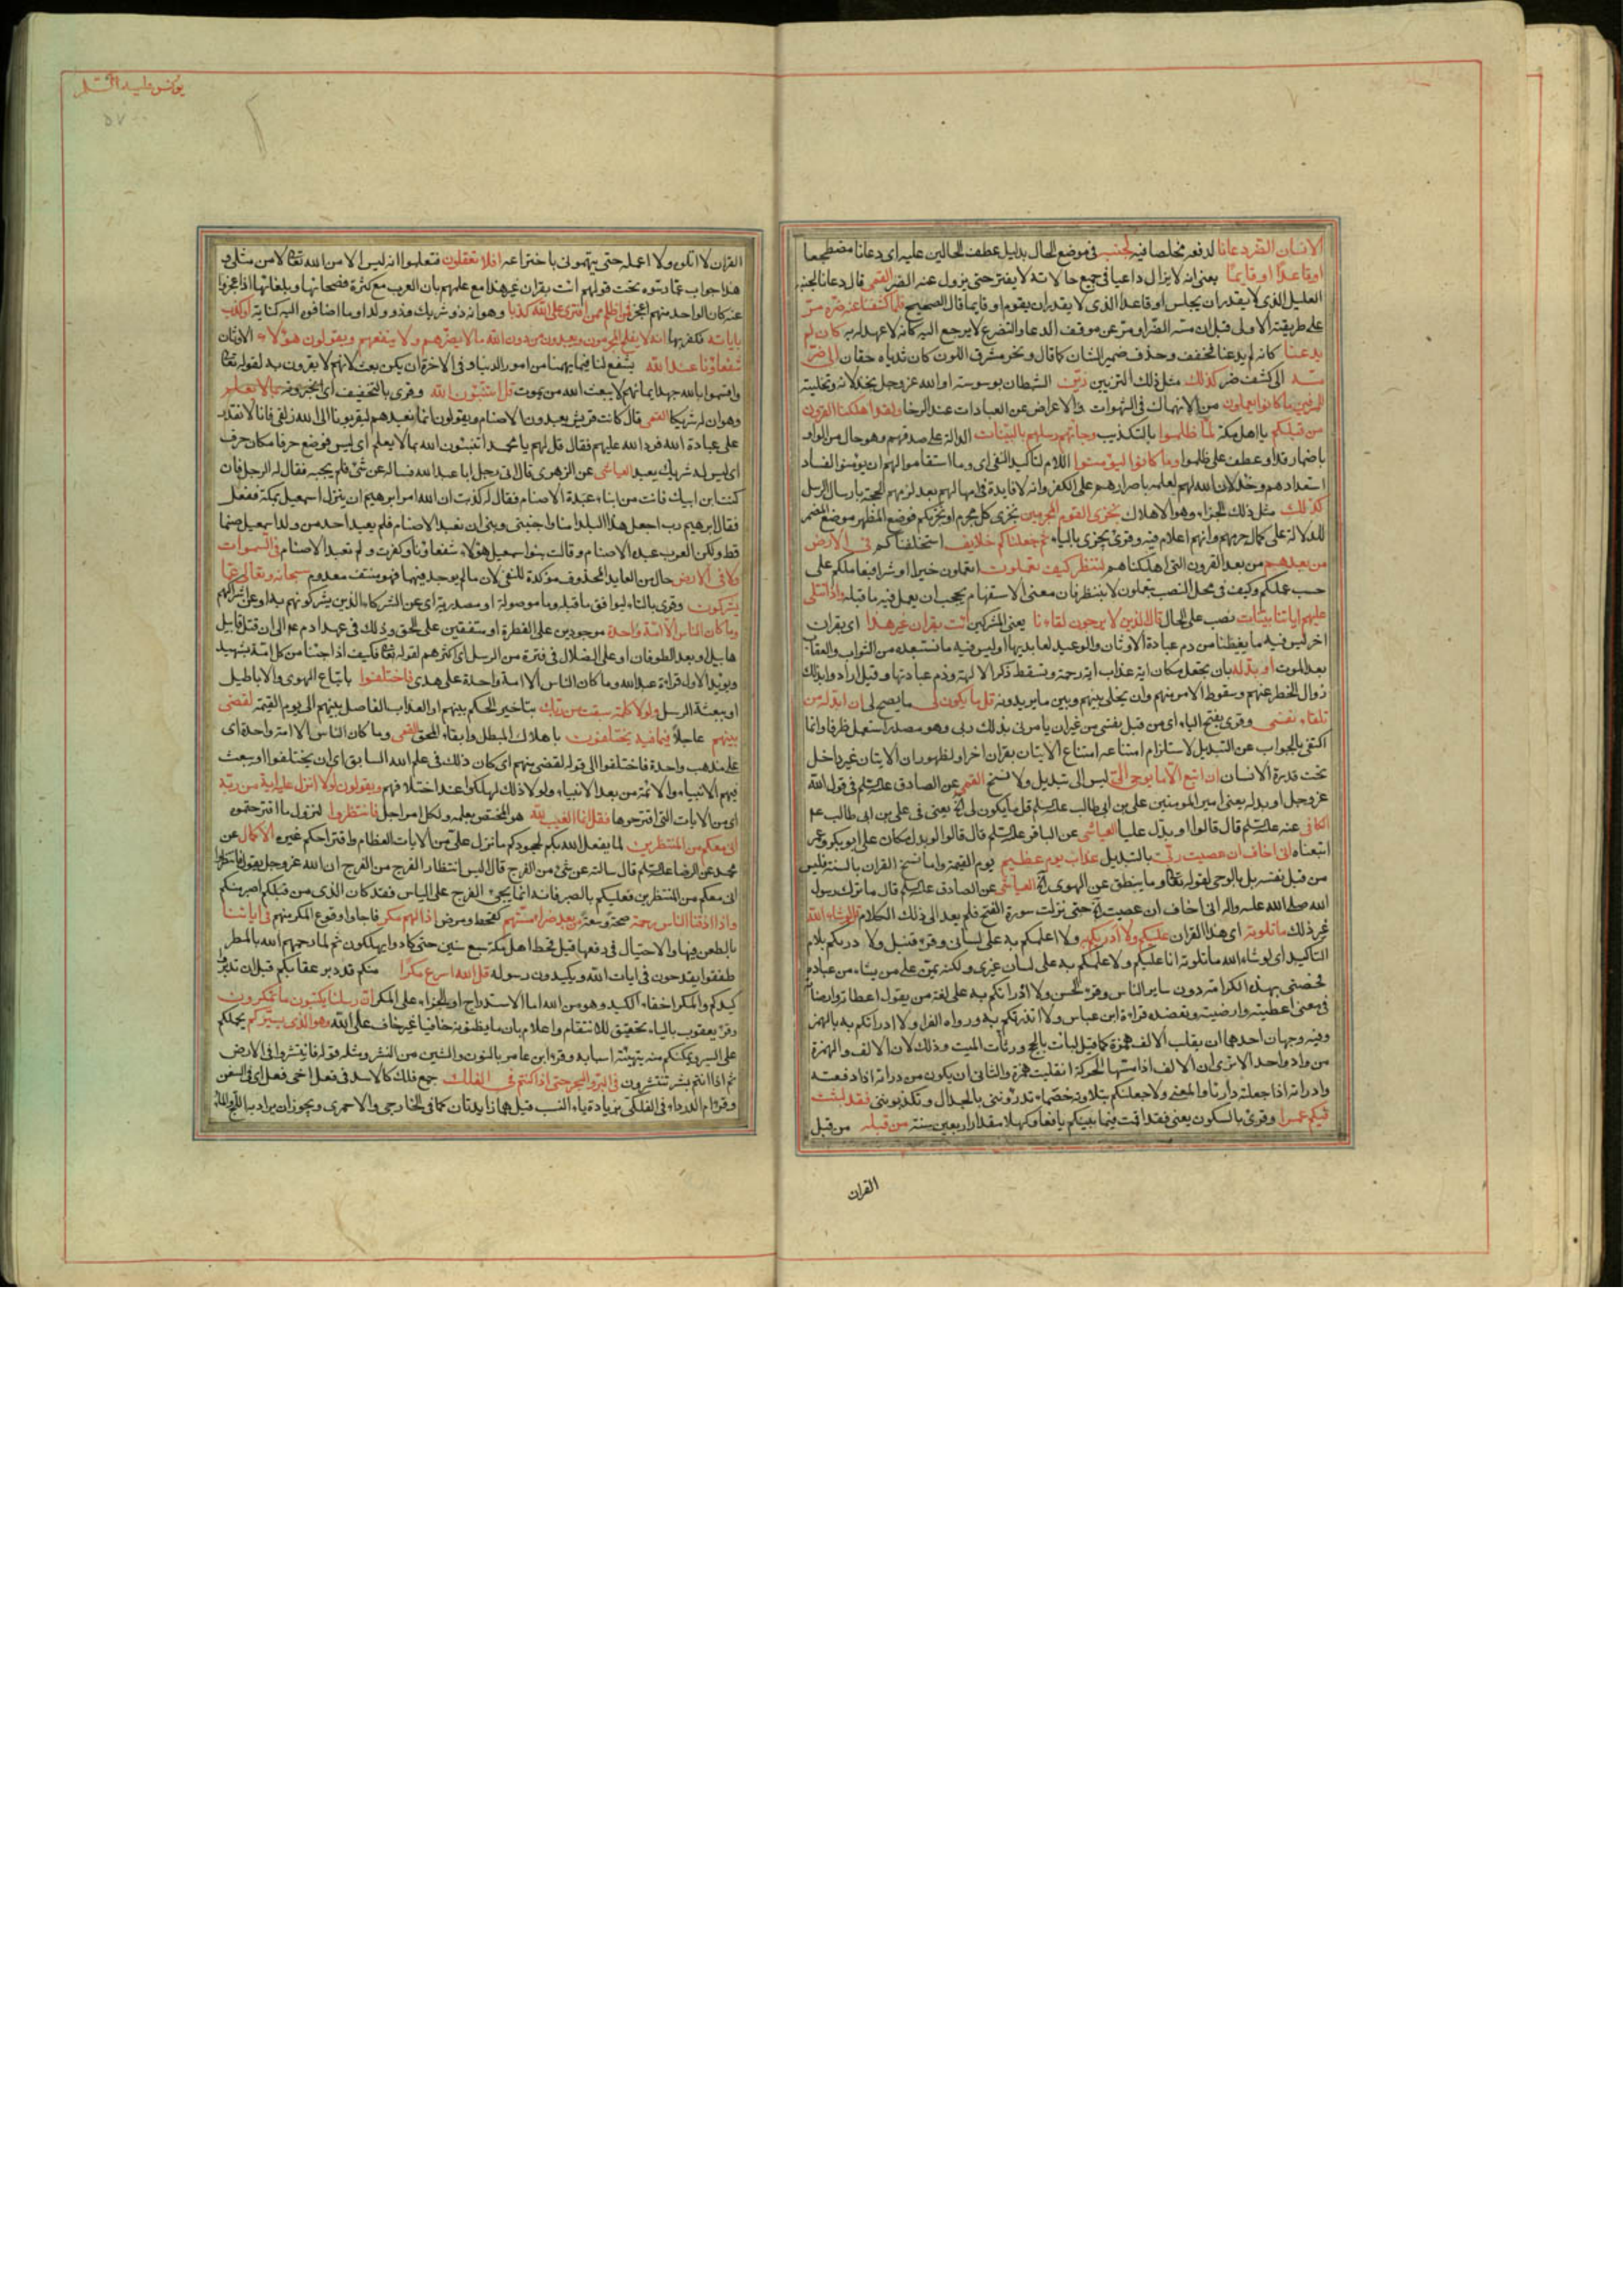 يونس عليه السلم
الانسان الضر دعانا لدفعه مخلصا فيه لجنبه في موضع الحال بدليل عطف الحالين عليه اى دعانا مضطجعا
اوقاعدا اوقايما يعنى انه لايزال داعيا فى جميع حالاته لا يفتر حتى يزول عنه الضر القمى قال دعانا لجنبه
العليل الذى لا يقدر ان يجلس اوقاعدا الذى لا يقدر ان يقوم اوقايما قال الصحيح فلما كشفنا عنه ضره مر
على طريقته الاولى قبل ان مسه الضر او مر عن موقف الدعا والتضرع لا يرجع اليه كانه لا عهد له به كان لم
يدعنا كانه لم يدعنا فخفف وحذف ضمير الشان كما قال ونحر مشرق اللون كان ثدياه حقان الى ضر
مسه الى كشف ضر كذلك مثل ذلك التزيين زين الشيطان بوسوسته او الله عز وجل بخذلانه وتخليته
للمرفين ما كانوا يعملون من الانهماك فى الشهوات والاعراض عن العبادات عند الرخا ولقد اهلكنا القرون
من قبلكم يا اهل مكة لما ظلموا بالتكذيب وجاتهم رسلهم بالبينات الدالة على صدقهم وهو حال من الواو
باضمار قد او عطف على ظلموا وما كانوا ليؤمنوا اللام لتاكيد النفى اى وما استقاموا لهم ان يومنوا لفساد
استعدادهم وخذلان الله لهم لعلمه باصرارهم على الكفر وانه لا فايدة فى امهالهم بعد لزمهم الحجة بارسال الرسل
كذلك مثل ذلك الجزاء وهو الاهلاك نجزى القوم المجرمين نجزى كل مجرم او نجزيكم فوضع المظهر موضع المضمر
للدلالة على كمال جرمهم وانهم اعلام فيه وقرئ يجزى بالياء ثم جعلناكم خلايف استخلفناكم فى الارض
من بعدهم من بعد القرون التى اهلكناهم لننظر كيف تعملون اتعملون خيرا او شرا فنعاملكم على
حسب عملكم وكيف فى محل النصب بتعملون لا بننظر فان معنى الاستفهام يحجب ان يعمل فيه ما قبله واذا تتلى
عليهم اياتنا بينات نصب على الحال قال الذين لا يرجون لقاءنا يعنى المشركين ائت بقران غير هذا اى بقران
اخر ليس فيه ما يغيظنا من ذم عبادة الاوثان والوعيد لعابديها او ليس فيه ما نستبعده من الثواب والعقاب
بعد الموت او بدله بان يجعل مكان اية عذاب اية رحمة وتسقط ذكر الالهة وذم عبادتها وقيل ارادوا بذلك
زوال الخطر عنهم وسقوط الامر منهم وان يخلى بينهم وبين ما يريدونه قل ما يكون لى ما يصح لى ان ابدله من
تلقاء نفسى وقرى بفتح التاء اى من قبل نفسى من غير ان يامرنى بذلك ربى وهو مصدر استعمل ظرفا وانما
اكتفى بالجواب عن التبديل لاستلزام امتناعه امتناع الاتيان بقران اخر او لظهور ان الاتيان غير داخل
تحت قدرة الانسان ان اتبع الا ما يوحى الى ليس الى تبديل ولا نسخ القمى عن الصادق عليه السلم فى قول الله
عز وجل او بدله يعنى امير المومنين على بن ابى طالب عليه السلم قل ما يكون لى الخ يعنى فى على بن ابى طالب عم
الكافى عنه عليه السلم قال قالوا او بدل عليا العياشى عن الباقر عليه السلم قال قالوا لو بدل مكان على ابو بكر وعمر
اتبعناه انى اخاف ان عصيت ربى بالتبديل عذاب يوم عظيم يوم القيمة واما نسخ القران بالسنة فليس
من قبل نفسه بل بالوحى لقوله تعالى وما ينطق عن الهوى الخ العياشى عن الصادق عليه السلم قال ما ترك رسول
الله صلى الله عليه واله انى اخاف ان عصيت الخ حتى نزلت سورة الفتح فلم يعد الى ذلك الكلام قل لو شاء الله
غير ذلك ما تلوته اى هذا القران عليكم ولا ادريكم به ولا اعلمكم به على لسانى وقرء قنبل ولادريكم بلام
التاكيد اى لو شاء الله ما تلوته انا عليكم ولاعلمكم به على لسان غيرى ولكنه يمن على من يشاء من عباده
فخصنى بهذه الكرامة دون ساير الناس وقرء الحسن ولا ادراتكم به على لغة من يقول اعطاته وارضاته
فى معنى اعطيته وارضيته ويعضده قراءة ابن عباس ولا انذرتكم به ورواه الفرا ولا ادراتكم به بالهمز
وفيه وجهان احدهما ان يقلب الالف همزة كما قيل لبات بالحج ورثات الميت وذلك لان الالف والهمزة
من واد واحد الا ترى ان الالف اذا مستها الحركة انقلبت همزة والثانى ان يكون من دراته اذا دفعته
وادراته اذا جعلته دارئا والمعنى ولا جعلتكم بتلاوته خصماء تدرؤننى بالجدال وتكذبوننى فقد لبثت
فيكم عمرا وقرئ بالسكون يعنى فقد اقمت فيما بينكم يافعا وكهلا مقدار اربعين سنة من قبله من قبل
القران
القران لا اتلوه ولا اعمله حتى يتهمونى باختراعه افلا تعقلون فتعلموا انه ليس الا من الله تعالى لا من مثلى و
هذا جواب عما دسوه تحت قولهم ائت بقران غير هذا مع علمهم بان العرب مع كثرة فصحائها وبلغائها اذا عجزوا
عنه كان الواحد منهم اعجز فمن اظلم ممن افترى على الله كذبا وهو انه ذو شريك وذو ولد او ما اضافوه اليه كناية او كذب
باياته فكفر بها انه لا يفلح المجرمون ويعبدون من دون الله ما لا يضرهم ولا ينفعهم ويقولون هؤلاء الاوثان
شفعاؤنا عند الله يشفع لنا فيما يهمنا من امور الدنيا وفى الاخرة ان يكن بعث لانهم لا يقرون به لقوله تعالى
واقسموا بالله جهد ايمانهم لا يبعث الله من يموت قل اتنبئون الله وقرى بالتخفيف اى اتخبرونه بما لا يعلم
وهو ان له شريكا القمى قال كانت قريش يعبدون الاصنام ويقولون انما نعبدهم ليقربونا الى الله زلفى فانا لا نقدر
على عبادة الله فرد الله عليهم فقال قل لهم يا محمد اتنبئون الله بما لا يعلم اى ليس فوضع حرفا مكان حرف
اى ليس له شريك يعبد العياشى عن الزهرى قال اتى رجل ابا عبد الله فساله عن شئ فلم يجبه فقال له الرجل فان
كنت ابن ابيك فانت من ابناء عبدة الاصنام فقال له كذبت ان الله امر ابرهيم ان ينزل اسمعيل بمكة ففعل
فقال ابرهيم رب اجعل هذا البلد امنا واجنبنى وبنى ان نعبد الاصنام فلم يعبد احد من ولد اسمعيل صنما
قط ولكن العرب عبدة الاصنام وقالت بنو اسمعيل هؤلاء شفعاؤنا وكفرت ولم تعبد الاصنام فى السموات
ولا فى الارض حال من العايد المحذوف مؤكدة للنفى لان ما لم يوجد فيهما فهو منتف معدوم سبحانه وتعالى عما
يشركون وقرى بالتاء ليوافق ما قبله وما موصولة او مصدرية اى عن الشركاء الذين يشركونهم به او عن اشراكهم
وما كان الناس الا امة واحدة موجودين على الفطرة او متفقين على الحق وذلك فى عهد ادم عم الى ان قتل قابيل
هابيل او بعد الطوفان او على الضلال فى فترة من الرسل اى اكثرهم لقوله تعالى فكيف اذا جئنا من كل امة بشهيد
ويؤيد الاول قراءة عبد الله وما كان الناس الا امة واحدة على هدى فاختلفوا باتباع الهوى والاباطيل
او ببعثة الرسل ولولا كلمة سبقت من ربك بتاخير الحكم بينهم او العذاب الفاصل بينهم الى يوم القيمة لقضى
بينهم عاجلا فيما فيه يختلفون باهلاك المبطل وابقاء المحق القمى وما كان الناس الا امة واحدة اى
على مذهب واحدة فاختلفوا الى قوله لقضى بينهم اى كان ذلك فى علم الله السابق اى ان يختلفوا او يبعث
فيهم الانبياء والائمة من بعد الانبياء ولولا ذلك لهلكوا عند اختلافهم ويقولون لولا انزل عليه اية من ربه
اى من الايات التى اقترحوها فقل انما الغيب لله هو المختص بعلمه ولكل امر اجل فانتظروا لنزول ما اقترحتموه
انى معكم من المنتظرين لما يفعل الله بكم لجحودكم ما نزل على من الايات العظام واقتراحكم غيره الاكمال عن
محمد عن الرضا عليه السلم قال سالته عن شئ من الفرج قال اليس انتظار الفرج من الفرج ان الله عز وجل يقول فانتظروا
انى معكم من المنتظرين فعليكم بالصبر فانه انما يجئ الفرج على الياس فقد كان الذى من قبلكم اصبر منكم
واذا اذقنا الناس رحمة صحة وسعة من بعد ضراء مستهم كقحط ومرض اذا لهم مكر فاجاوا وقوع المكر منهم فى اياتنا
بالطعن فيها والاحتيال فى دفعها قيل قحط اهل مكة سبع سنين حتى كادوا يهلكون ثم لما رحمهم الله بالمطر
طفقوا يقدحون فى ايات الله ويكيدون رسوله قل الله اسرع مكرا منكم قد دبر عقابكم قبل ان تدبروا
كيدكم والمكر اخفاء الكيد وهو من الله اما الاستدراج او الجزاء على المكر ان رسلنا يكتبون ما تمكرون
وقرء يعقوب بالياء تحقيق للانتقام واعلام بان ما يظنونه خافيا غير خاف على الله وهو الذى يسيركم يحملكم
على السير ويمكنكم منه بتهيئة اسبابه وقرء ابن عامر بالنون والشين من النشر ومثله قوله فانتشروا فى الارض
ثم اذا انتم بشر تنتشرون فى البر والبحر حتى اذا كنتم فى الفلك جمع فلك كالاسد فى فعل اخى فعل اى فى السفن
وقرء ام الدرداء فى الفلكى بزيادة ياء النسب قيل هما زايدتان كما فى الخارجى والاحمرى ويجوز ان يراد به اللج والماء